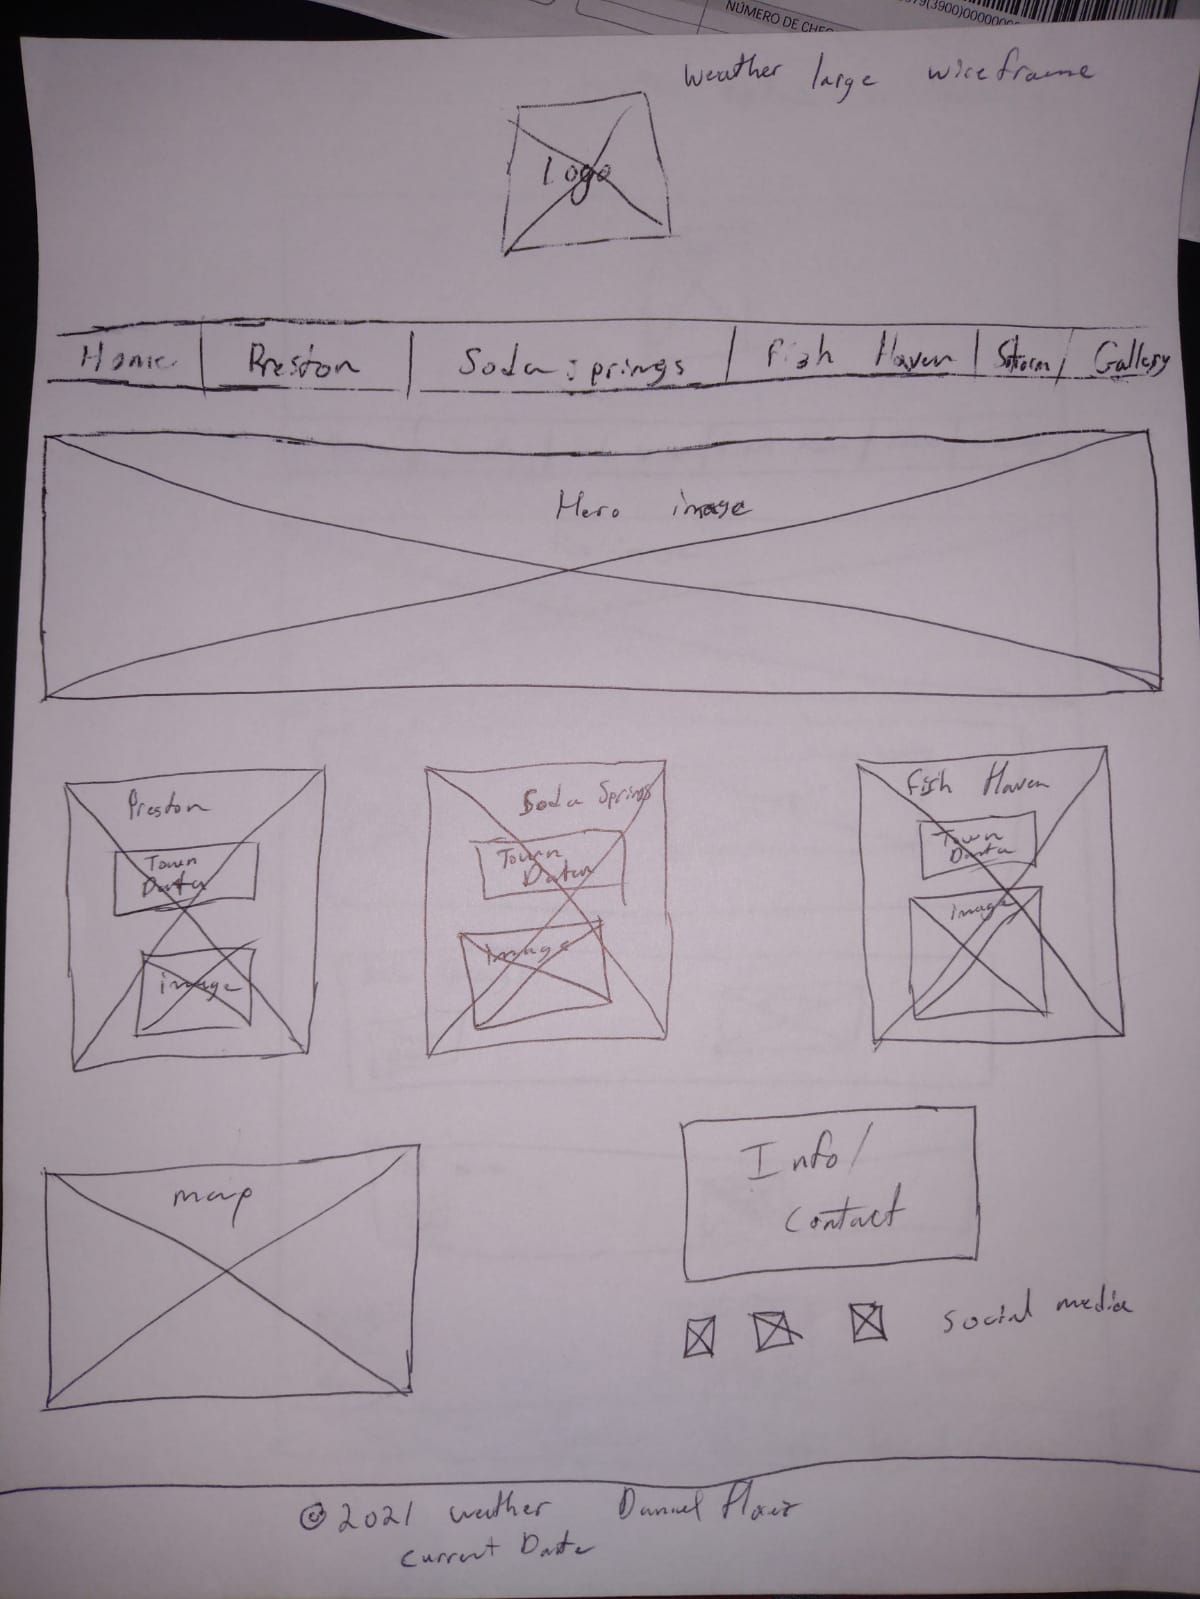 NÚMERO DE CHE
79(3900)0000000
Weather large wireframe
Logo
Home | Preston | Soda springs | Fish Haven | Storm | Gallery
Hero image
Preston
Town
Data
image
Soda Springs
Town
Data
Image
Fish Haven
Town
Data
image
map
Info/
Contact
social media
© 2021 weather Daniel
Current Date